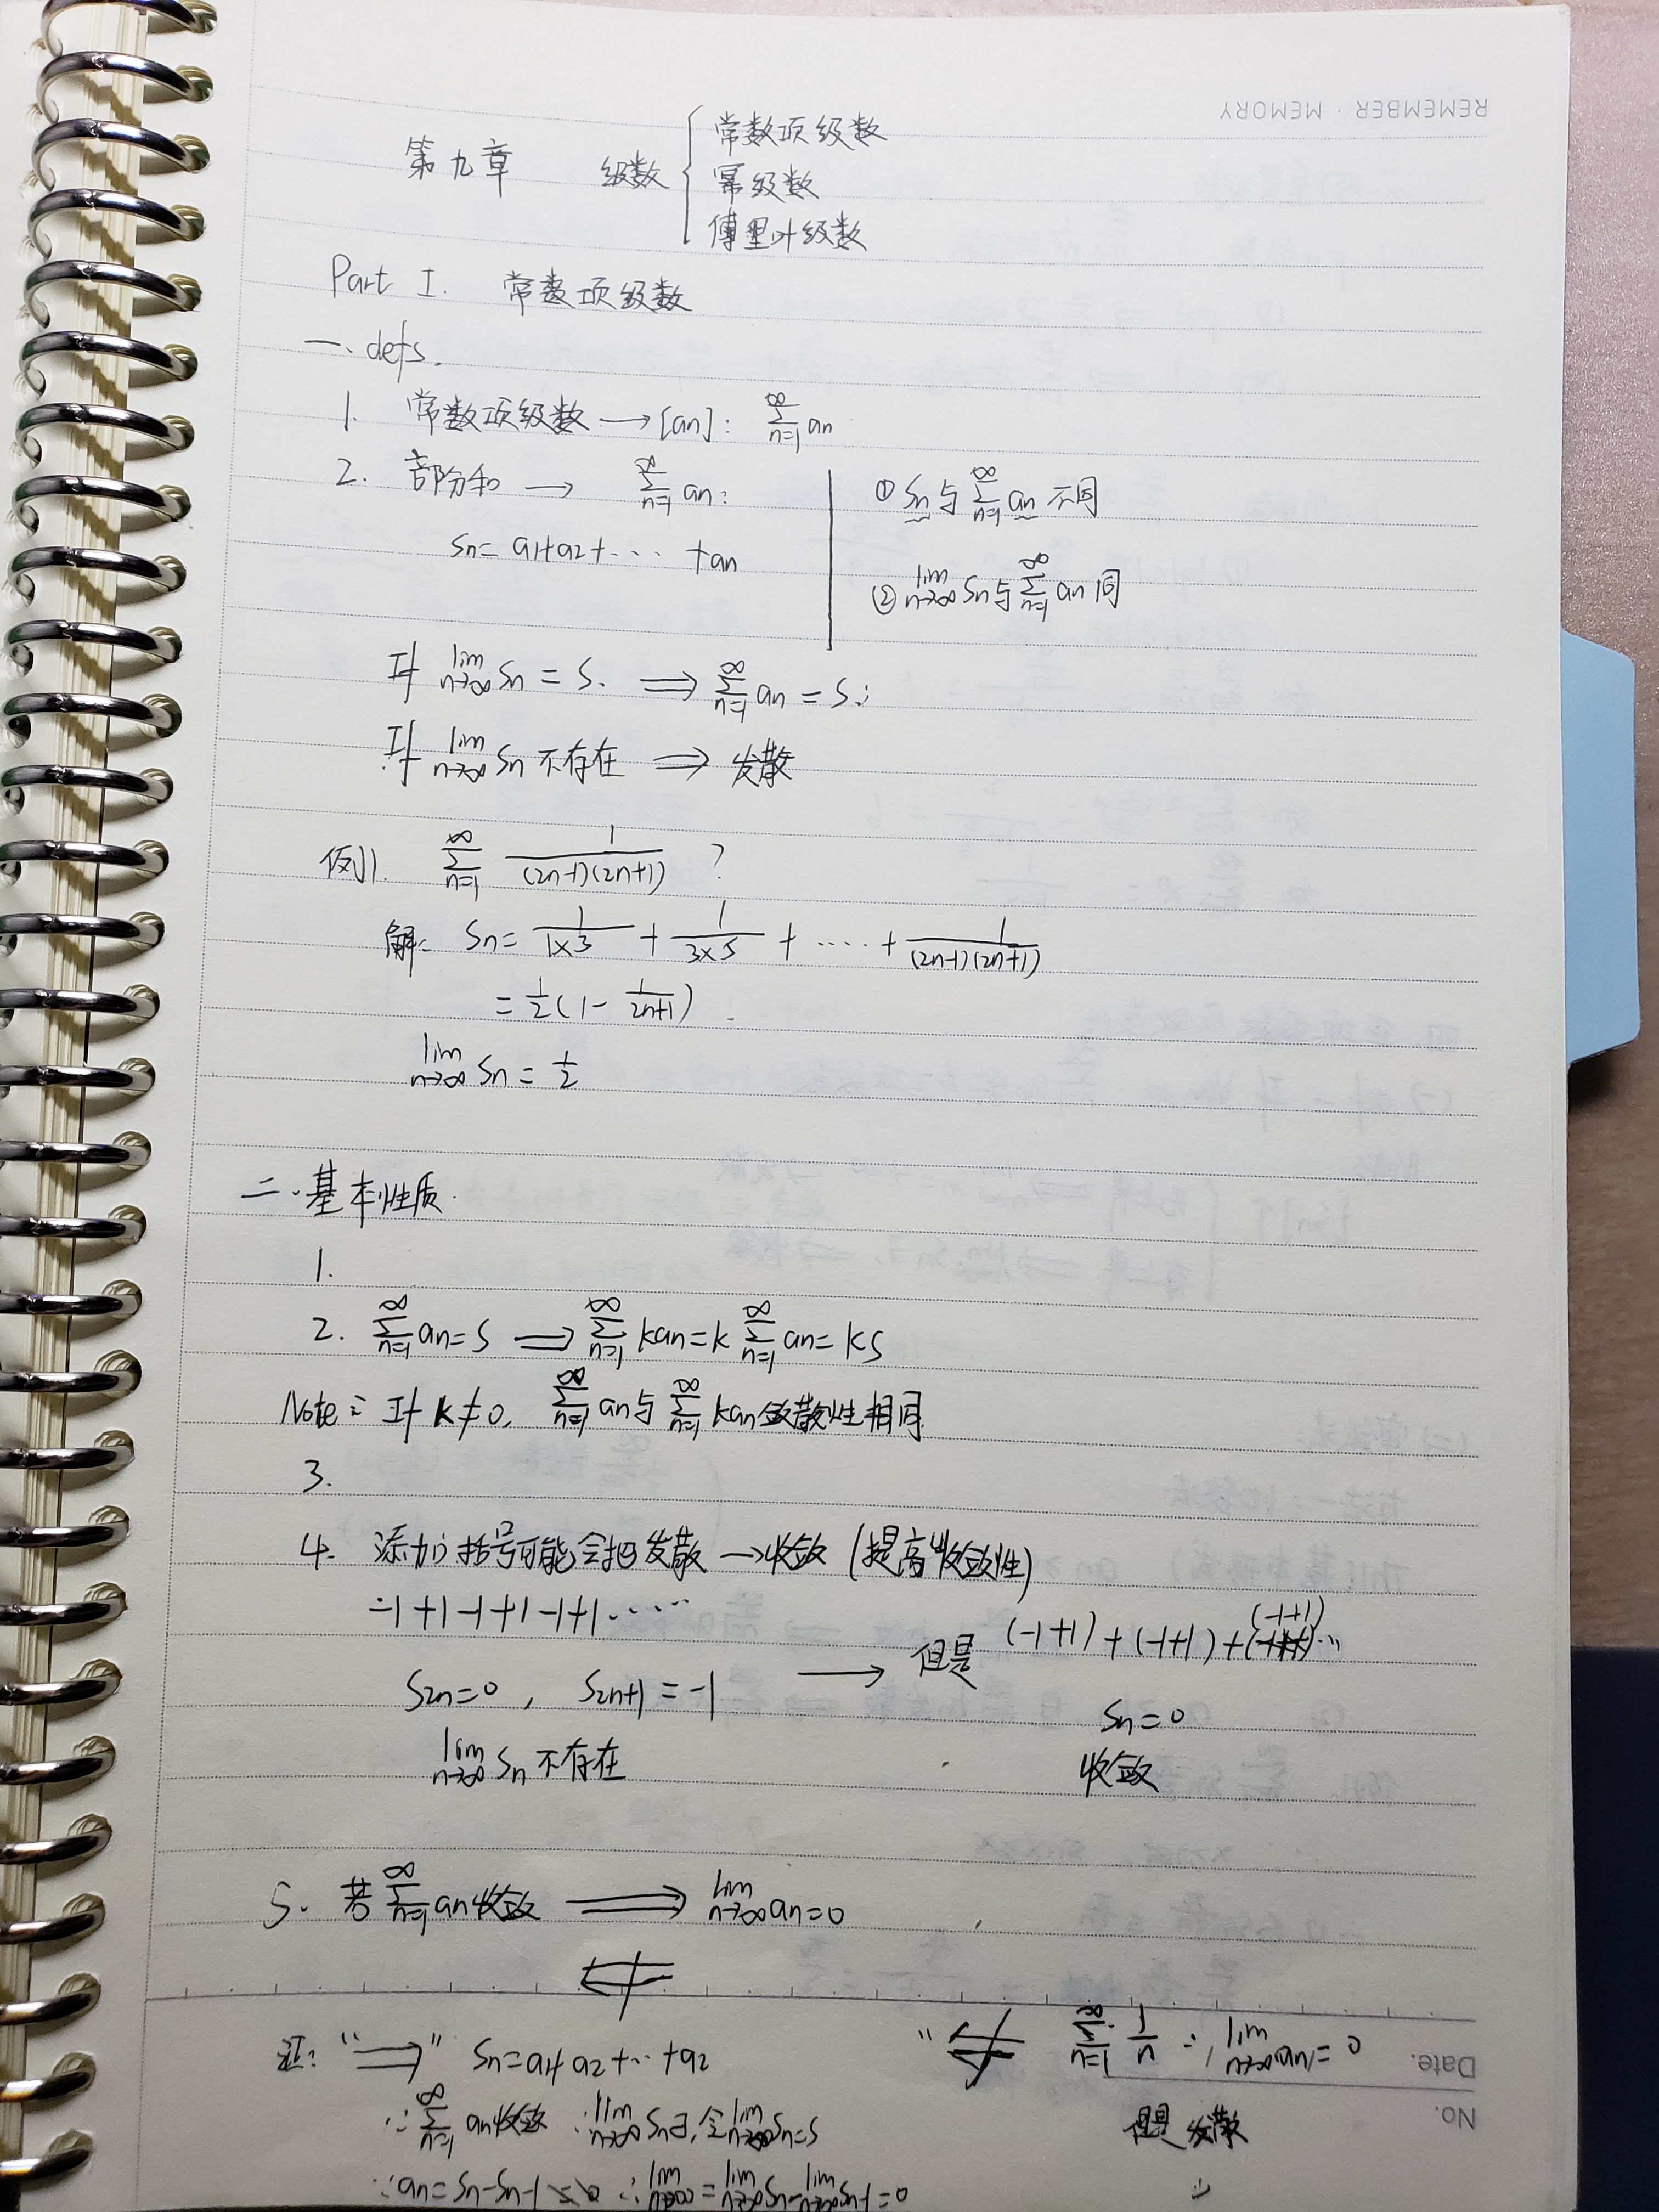 REMEMBER · MEMORY
第九章 级数 { 常数项级数
幂级数
傅里叶级数
Part I. 常数项级数
一、defs.
1. 常数项级数 → [an]: ∑_{n=1}^{∞} an
2. 部分和 → ∑_{n=1}^{∞} an:
Sn = a1+a2+···· +an
① Sn与∑_{n=1}^{∞} an 不同
② lim_{n→∞} Sn与∑_{n=1}^{∞} an 同
If lim_{n→∞} Sn = S. ⟹ ∑_{n=1}^{∞} an = S;
If lim_{n→∞} Sn 不存在 ⟹ 发散
例1. ∑_{n=1}^{∞} 1/((2n-1)(2n+1)) ?
解: Sn = 1/(1×3) + 1/(3×5) + ····· + 1/((2n-1)(2n+1))
= 1/2 (1 - 1/(2n+1)).
lim_{n→∞} Sn = 1/2
二、基本性质.
1.
2. ∑_{n=1}^{∞} an = S ⟹ ∑_{n=1}^{∞} kan = k ∑_{n=1}^{∞} an = kS
Note: If k≠0, ∑_{n=1}^{∞} an 与 ∑_{n=1}^{∞} kan 敛散性相同.
3.
4. 添加括号可能会把发散 → 收敛 (提高收敛性)
-1+1-1+1-1+1·····
S2n=0, S2n+1=-1 → 但是 (-1+1)+(-1+1)+(-1+1)...
Sn=0
lim_{n→∞} Sn 不存在
收敛
5. 若∑_{n=1}^{∞} an收敛 ⟹ lim_{n→∞} an=0
⟸̸
证: "⟹" Sn=a1+a2+··+a2
∵ ∑_{n=1}^{∞} an收敛 ∴ lim_{n→∞} Sn∃, 令lim_{n→∞} Sn=S
∵ an=Sn-Sn-1 ∴ lim_{n→∞} = lim_{n→∞} Sn - lim_{n→∞} Sn-1 = 0
"⟸̸ ∑_{n=1}^{∞} 1/n ∵ lim_{n→∞} an = 0
但是 发散
Date.
No.